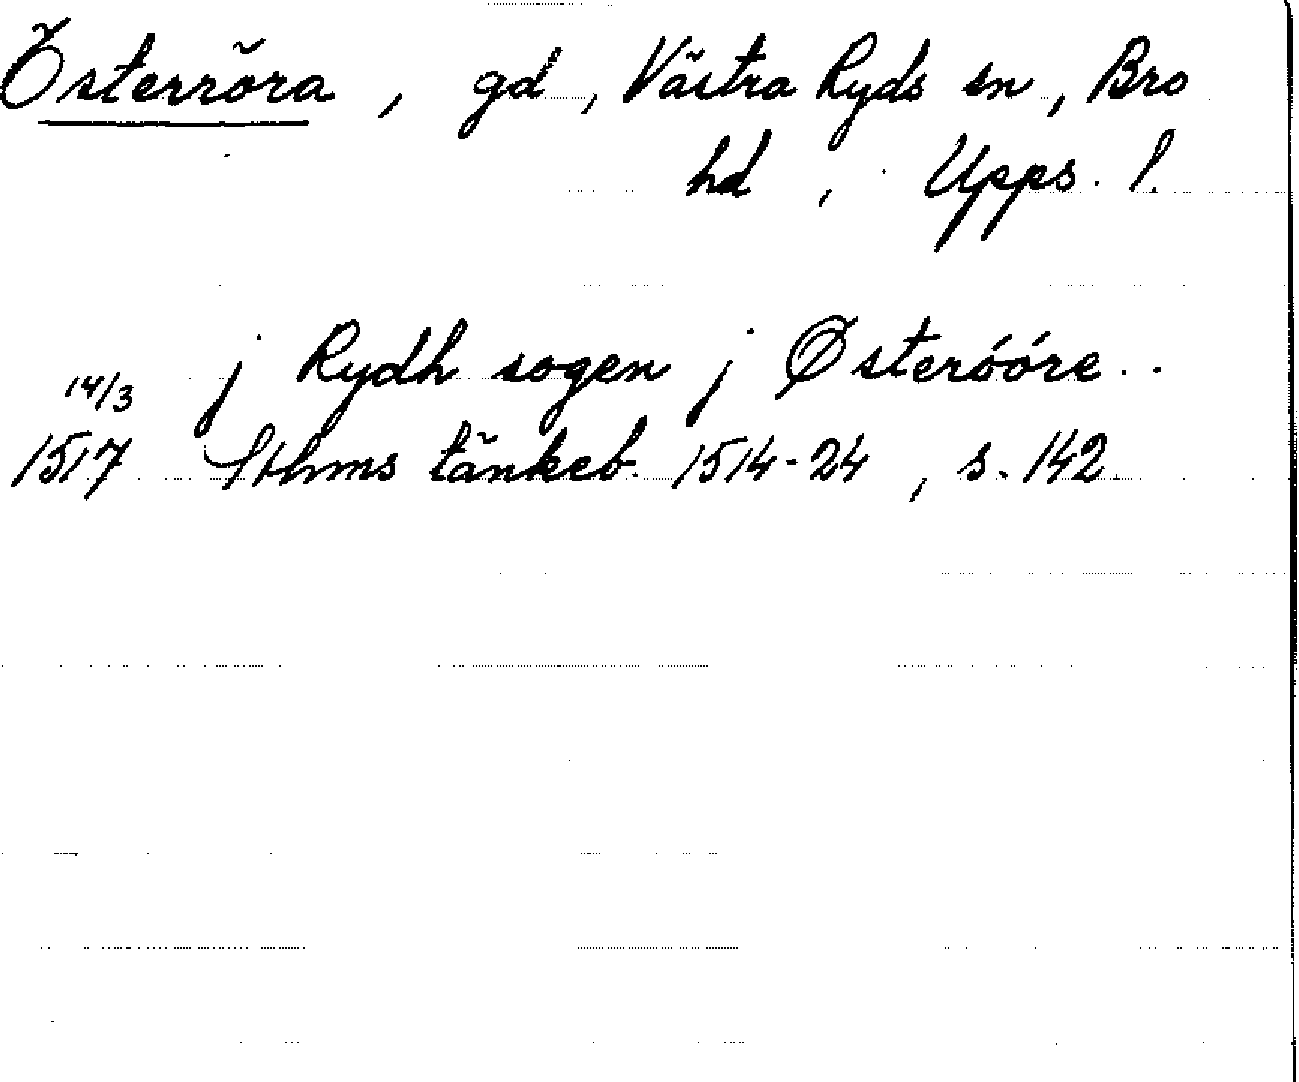 Österröra, gd, Västra Ryds sn, Bro
hd, Upps. l.
j Rydh sogen j Østeróóre..
14/3
1517 Sthms tänkeb. 1514-24, s. 142.